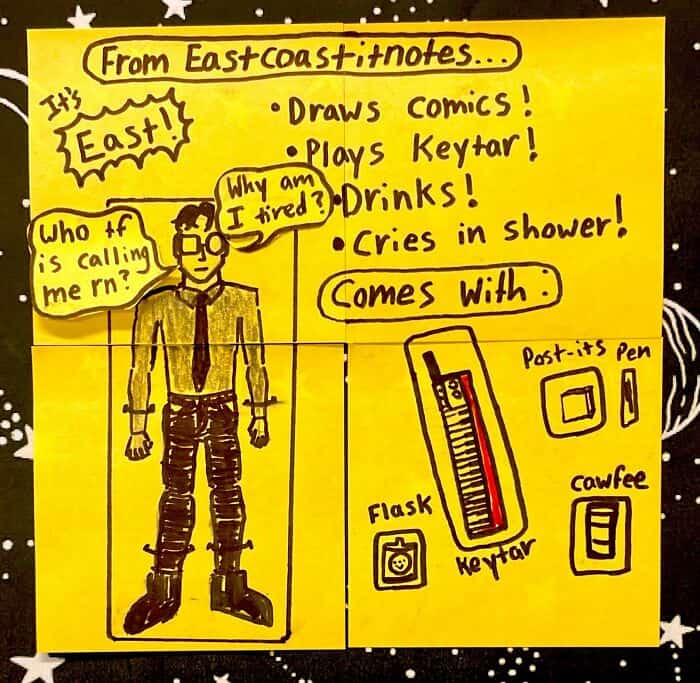 From Eastcoastitnotes...
It's
East!
• Draws comics!
• Plays Keytar!
• Drinks!
• Cries in shower!
Why am
I tired?
Who tf
is calling
me rn?
Comes With:
Post-its
Pen
Flask
Keytar
Cawfee